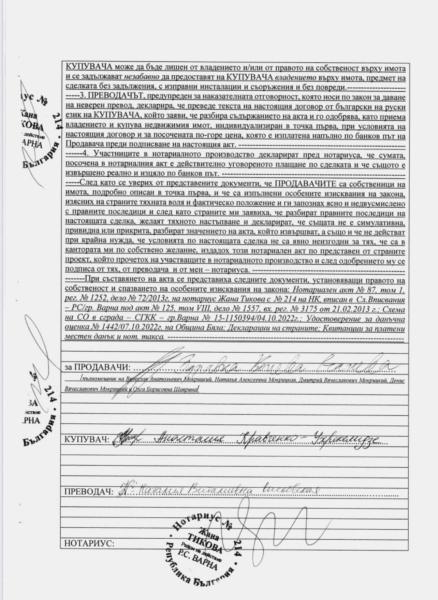 КУПУВАЧА може да бъде лишен от владението и/или от правото на собственост върху имота
и се задължават незабавно да предоставят на КУПУВАЧА владението върху имота, предмет на
сделката без забавления, с изправни инсталации и съоръжения и без повреди.
3. ПРЕВОДАЧЪТ, предупреден за наказателната отговорност, която носи по закон за даване
на неверен превод, декларира, че преведе текста на настоящия договор от български на руски
език на КУПУВАЧА, който заяви, че разбира съдържанието на акта и го одобрява, като приема
владението и купува недвижимия имот, индивидуализиран в точка първа, при условията на
настоящия договор и за посочената по-горе цена, която е изплатена напълно по банков път на
Продавача преди подписване на настоящия акт.
4. Участниците в нотариалното производство декларират пред нотариуса, че сумата,
посочена в нотариалния акт е действително уговореното плащане по сделката и че същото е
извършено реално и изцяло по банков път.
След като се уверих от представените документи, че ПРОДАВАЧИТЕ са собственици на
имота, подробно описан в точка първа, и че са изпълнени особените изисквания на закона,
изясних на страните тяхната воля и фактическо положение и ги запознах ясно и недвусмислено
с правните последици и след като страните ми заявиха, че разбират правните последици на
настоящата сделка, желаят тяхното настъпване и декларират, че същата не е симулативна,
привидна или прикрита, разбират значението на акта, който извършват, а също и че не действат
при крайна нужда, че условията по настоящата сделка не са явно неизгодни за тях, че са в
кантората ми по собствено желание, издадох този нотариален акт по представен от страните
проект, който прочетох на участващите в нотариалното производство и след одобрението му се
подписа от тях, от преводача и от мен – нотариуса.
При съставянето на акта се представиха следните документи, установяващи правото на
собственост и спазването на особените изисквания на закона: Нотариален акт № 87, том 1,
рег. № 1252, дело № 72/2013г. на нотариус Жана Тикова с № 214 на НК, вписан в Сл.Вписвания
– РС/гр. Варна под акт № 125, том VIII, дело № 1557, вх. рег. № 3175 от 21.02.2013 г.; Схема
на СО в сграда – СГКК – гр.Варна № 15-1150394/04.10.2022г.; Удостоверение за данъчна
оценка № 1442/07.10.2022г. на Община Бяла; Декларации на страните; Квитанции за платени
местен данък и нот. такса.
за ПРОДАВАЧИ:
(пълномощник на Вячеслав Анатольевич Мокрицкий, Наталья Алексеевна Мокрицкая, Дмитрий Вячеславович Мокрицкий, Денис
Вячеславович Мокрицкий и Ольга Борисовна Шаврина)
КУПУВАЧ: Анастасия Кравченко-
ПРЕВОДАЧ: Наталия Виталиевна
НОТАРИУС:
Нотариус № 214
Жана
ТИКОВА
Район на действие
Р.С. ВАРНА
Република България